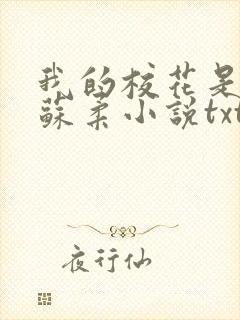 我的校花是
蘇柔小說txt
夜行仙